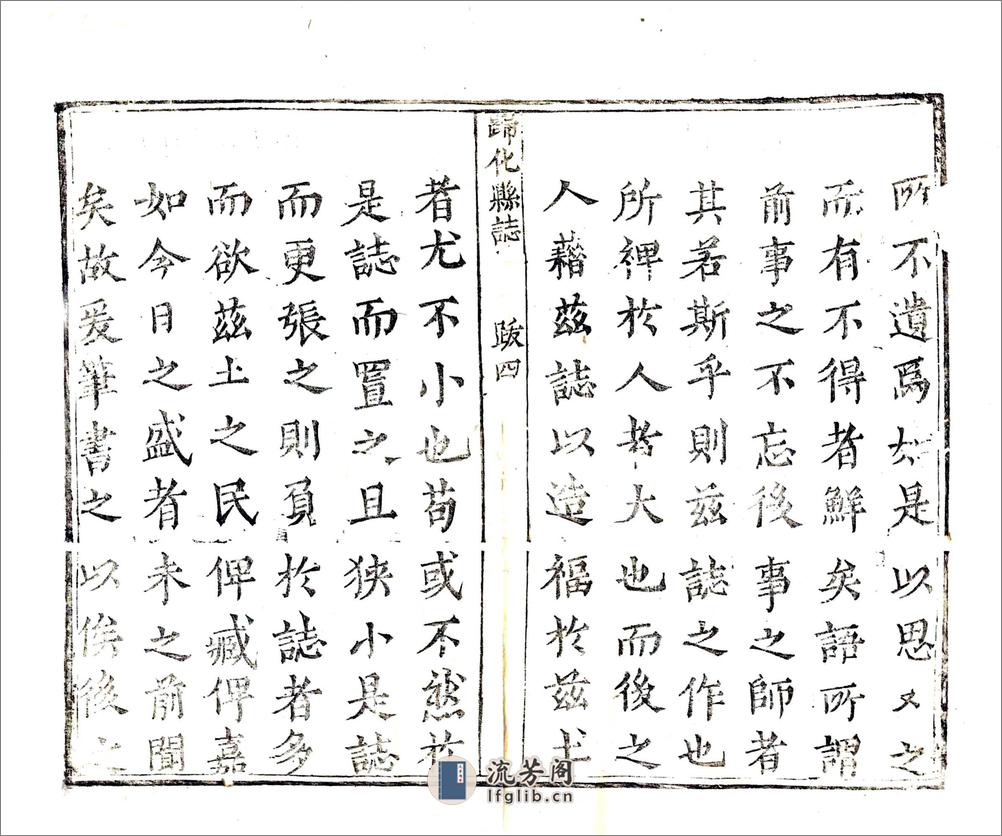 所不遺焉如是以思又之
而有不得者鮮矣語所謂
前事之不忘後事之師者
其若斯乎則茲誌之作也
所裨於人者大也而後之
人藉茲誌以造福於茲土
歸化縣誌 跋四
者尤不小也苟或不然於
是誌而置之且狹小是誌
而更張之則負於誌者多
而欲茲土之民俾臧俾嘉
如今日之盛者未之前聞
矣故爰筆書之以俟後之
流芳阁
lfglib.cn